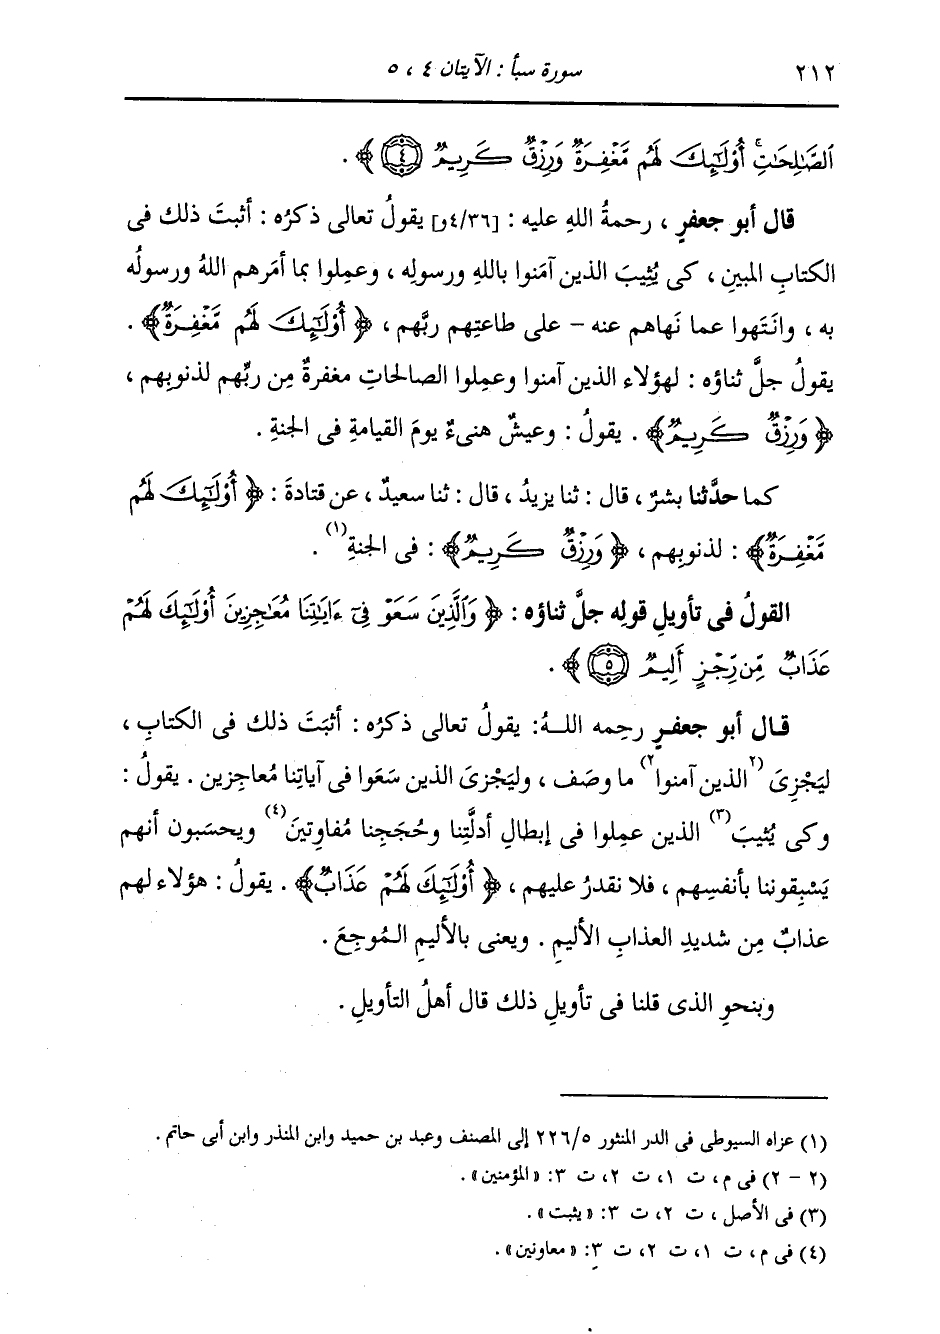 ٢١٢ سورة سبأ : الآيتان ٤ ، ٥
ٱلصَّٰلِحَٰتِۚ أُوْلَٰٓئِكَ لَهُم مَّغْفِرَةٌ وَرِزْقٌ كَرِيمٌ ﴿٤﴾ ﴾ .
قال أبو جعفرٍ ، رحمةُ اللهِ عليه : [٤/٣٦و] يقولُ تعالى ذكرُه : أثبتَ ذلك فى
الكتابِ المبينِ ، كى يُثِيبَ الذين آمَنوا باللهِ ورسولِه ، وعمِلوا بما أمَرهم اللهُ ورسولُه
به ، وانتَهوا عما نَهاهم عنه – على طاعتِهم ربَّهم ، ﴿ أُوْلَٰٓئِكَ لَهُم مَّغْفِرَةٌ ﴾ .
يقولُ جلَّ ثناؤه : لهؤلاء الذين آمنوا وعمِلوا الصالحاتِ مغفرةٌ مِن ربِّهم لذنوبِهم ،
﴿ وَرِزْقٌ كَرِيمٌ ﴾ . يقولُ : وعيشٌ هنىءٌ يومَ القيامةِ فى الجنةِ .
كما حدَّثنا بشرٌ ، قال : ثنا يزيدُ ، قال : ثنا سعيدٌ ، عن قتادةَ : ﴿ أُوْلَٰٓئِكَ لَهُم
مَّغْفِرَةٌ ﴾ : لذنوبِهم ، ﴿ وَرِزْقٌ كَرِيمٌ ﴾ : فى الجنةِ(١) .
القولُ فى تأويلِ قولِه جلَّ ثناؤه : ﴿ وَٱلَّذِينَ سَعَوْ فِىٓ ءَايَٰتِنَا مُعَٰجِزِينَ أُوْلَٰٓئِكَ لَهُمْ
عَذَابٌ مِّن رِّجْزٍ أَلِيمٌ ﴿٥﴾ ﴾ .
قـال أبو جعفـرٍ رحِمه اللـهُ: يقولُ تعالى ذكرُه : أثبَتَ ذلك فى الكتابِ ،
ليَجْزِىَ (٢الذين آمنوا٢) ما وصَف ، وليَجْزىَ الذين سَعَوا فى آياتِنا مُعاجِزين . يقولُ :
وكى يُثيبَ(٣) الذين عمِلوا فى إبطالِ أدلَّتِنا وحُجَجِنا مُفاوِتينَ(٤) ويحسَبون أنهم
يَسْبِقوننا بأنفسِهم ، فلا نقدرُ عليهم ، ﴿ أُوْلَٰٓئِكَ لَهُمْ عَذَابٌ ﴾ . يقولُ : هؤلاء لهم
عذابٌ مِن شديدِ العذابِ الأليمِ . ويعنى بالأليمِ الـمُوجِعَ .
وبنحوِ الذى قلنا فى تأويلِ ذلك قال أهلُ التأويلِ .
(١) عزاه السيوطى فى الدر المنثور ٢٢٦/٥ إلى المصنف وعبد بن حميد وابن المنذر وابن أبى حاتم .
(٢ - ٢) فى م ، ت ١، ت ٢، ت ٣: «المؤمنين» .
(٣) فى الأصل ، ت ٢، ت ٣: «يثبت» .
(٤) فى م ، ت ١، ت ٢، ت ٣: «معاونين» .